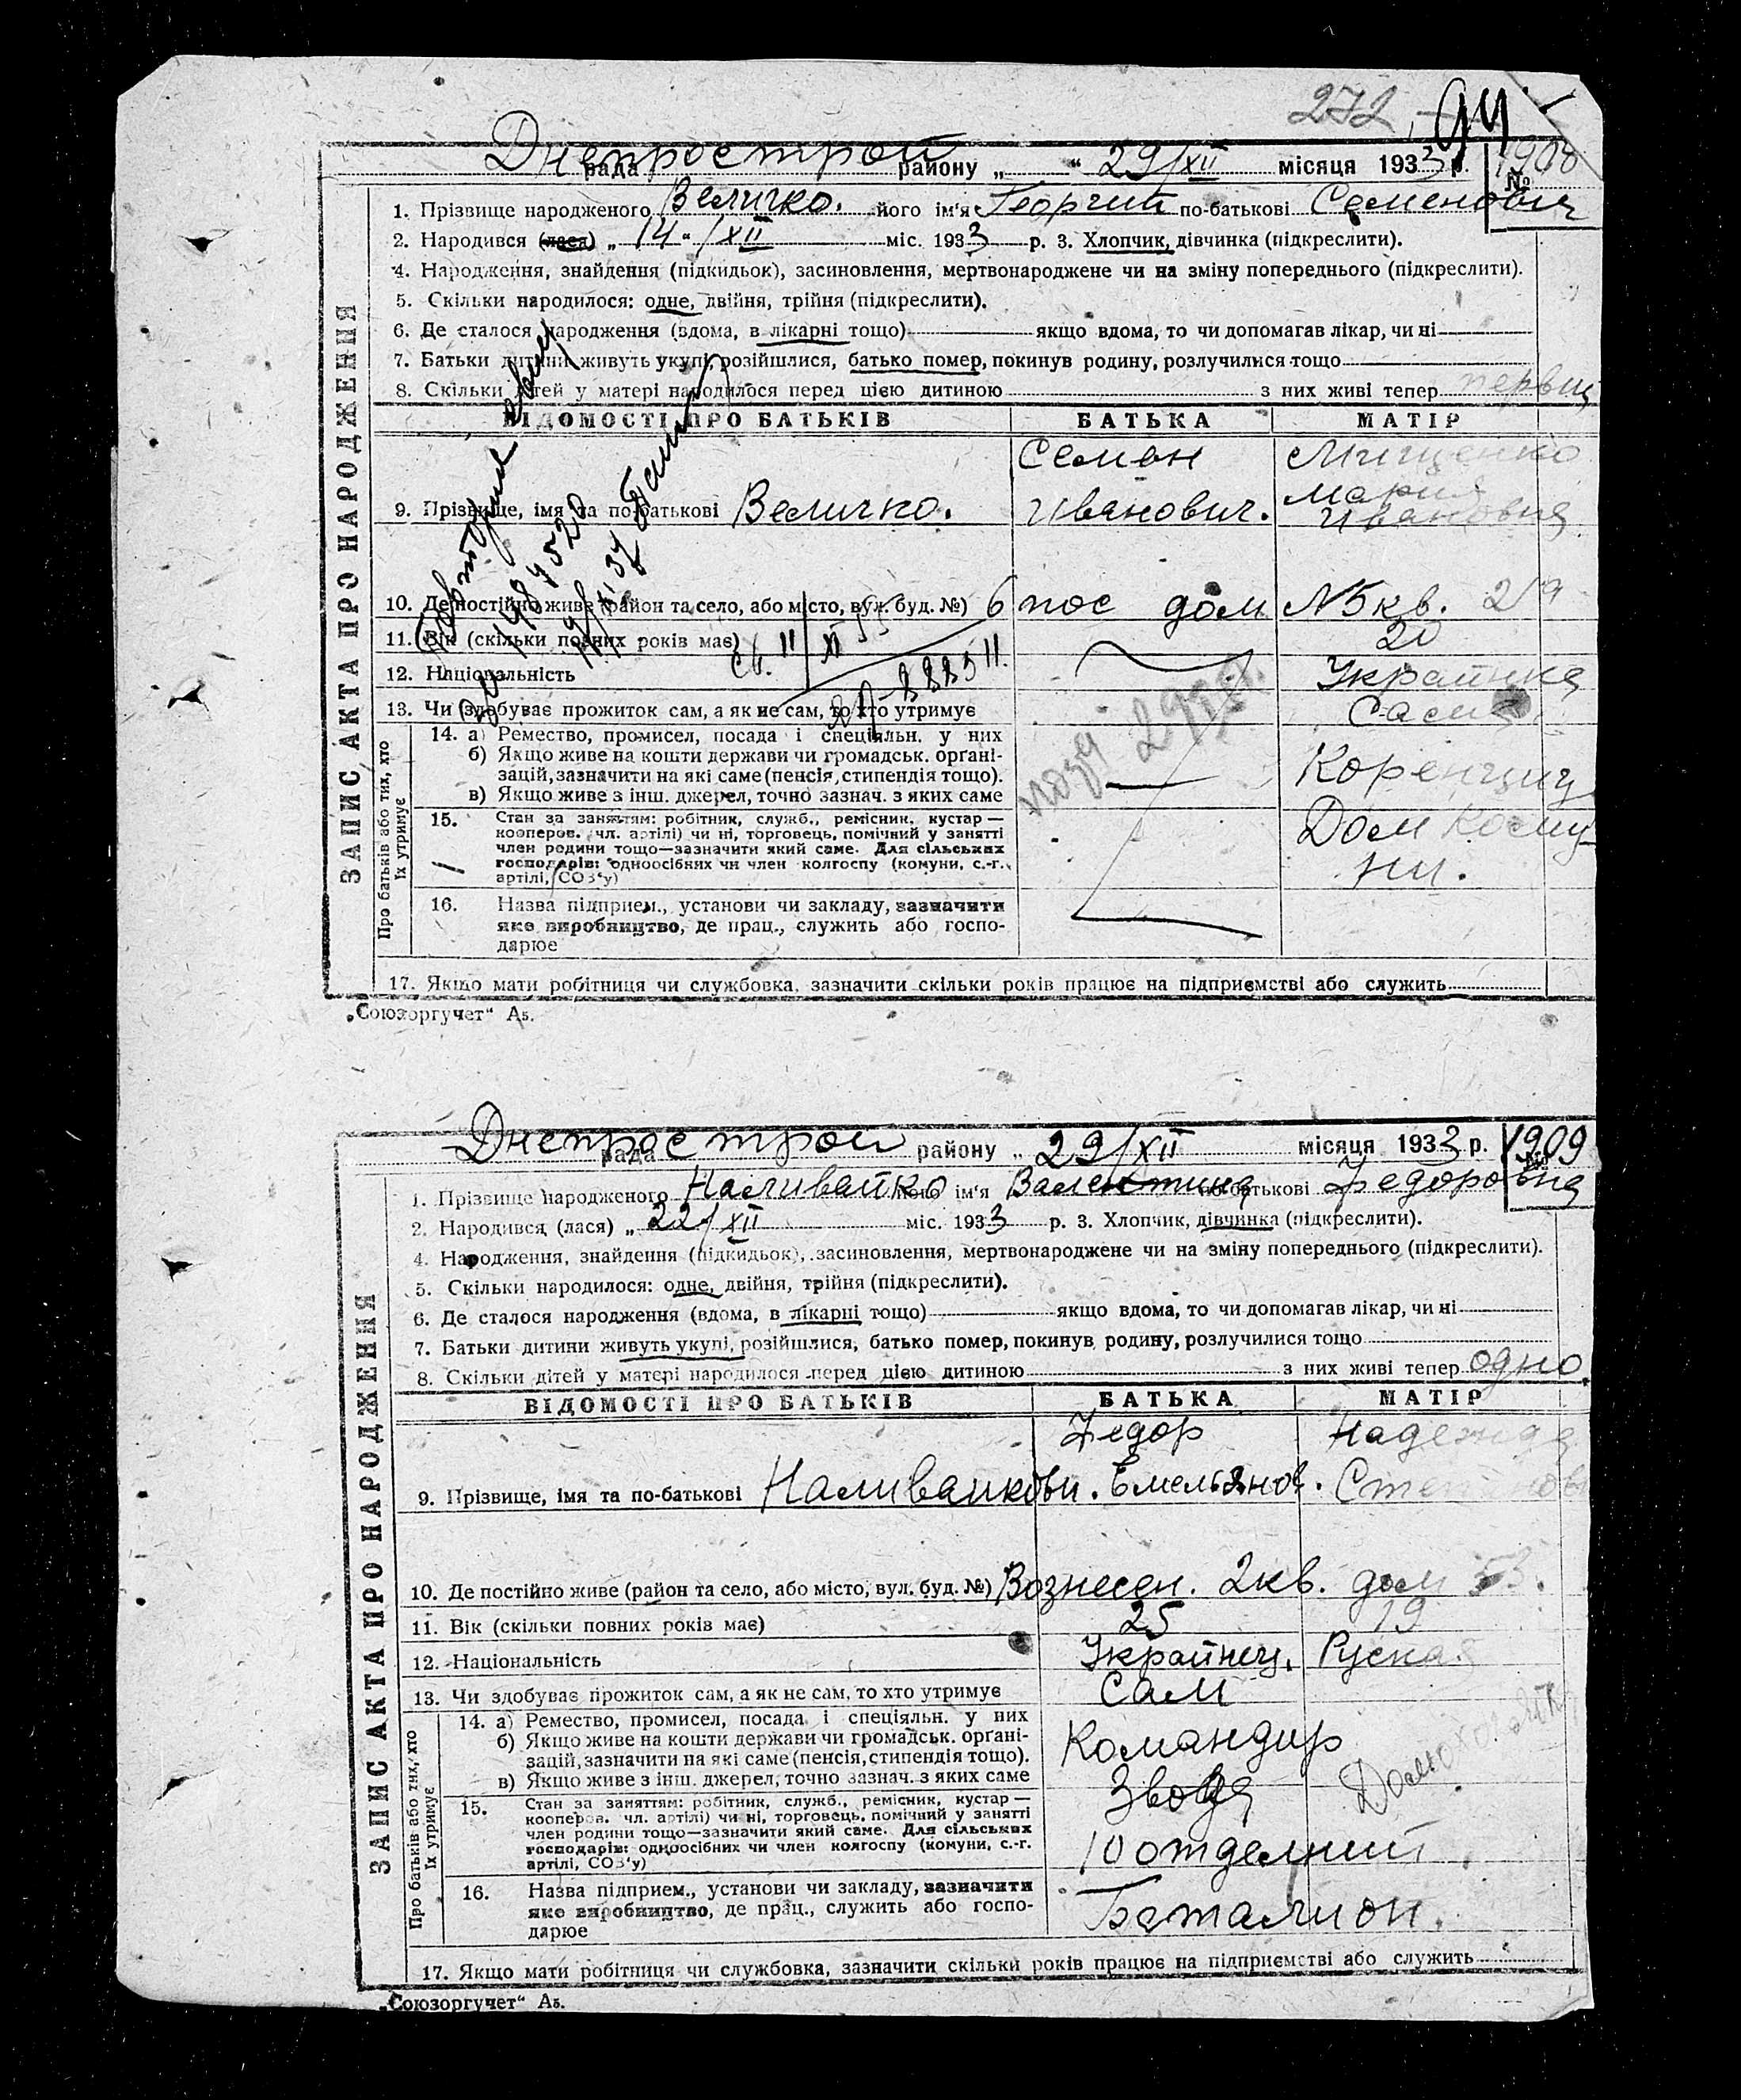 272
94
Днепрострой
рада району „ “ 29/XII місяця 1933 р. № 1908
1. Прізвище народженого Величко. його ім'я Георгий по-батькові Семенович
2. Народився (лася) „ 14 “/XII міс. 1933 р. 3. Хлопчик, дівчинка (підкреслити).
4. Народження, знайдення (підкидьок), засиновлення, мертвонароджене чи на зміну попереднього (підкреслити).
5. Скільки народилося: одне, двійня, трійня (підкреслити).
6. Де сталося народження (вдома, в лікарні тощо) якщо вдома, то чи допомагав лікар, чи ні
7. Батьки дитини живуть укупі, розійшлися, батько помер, покинув родину, розлучилися тощо
8. Скільки дітей у матері народилося перед цією дитиною з них живі тепер первиц
ВІДОМОСТІ ПРО БАТЬКІВ БАТЬКА МАТІР
Семен Мищенко
Мария
9. Прізвище, імя та по-батькові Величко. Иванович. Ивановна
10. Де постійно живе (район та село, або місто, вул. буд. №) 6 пос дом N5 кв. 219
11. Вік (скільки повних років має) 20
12. Національність Украинка
13. Чи здобуває прожиток сам, а як не сам, то хто утримує Сама
14. а) Ремество, промисел, посада і спеціяльн. у них
б) Якщо живе на кошти держави чи громадськ. органі-
зацій, зазначити на які саме (пенсія, стипендія тощо).
в) Якщо живе з інш. джерел, точно зазнач. з яких саме
Коренщиц
15. Стан за заняттям: робітник, служб., ремісник, кустар —
кооперов. чл. артілі) чи ні, торговець, помічний у занятті
член родини тощо—зазначити який саме. Для сільських
господарів: одноосібних чи член колгоспу (комуни, с.-г.
артілі, СОЗ'у)
Дом Кому-
ни.
16. Назва підприєм., установи чи закладу, зазначити
яке виробництво, де прац., служить або госпо-
дарює
17. Якщо мати робітниця чи службовка, зазначити скільки років працює на підприємстві або служить
Про батьків або тих, хто
їх утримує
ЗАПИС АКТА ПРО НАРОДЖЕННЯ
„Союзоргучет“ А5.
Днепрострой
рада району „ 29/XII місяця 1933 р. № 1909
1. Прізвище народженого Наливайко його ім'я Валентина по-батькові Федоровна
2. Народився (лася) „ 22/XII міс. 1933 р. 3. Хлопчик, дівчинка (підкреслити).
4. Народження, знайдення (підкидьок), засиновлення, мертвонароджене чи на зміну попереднього (підкреслити).
5. Скільки народилося: одне, двійня, трійня (підкреслити).
6. Де сталося народження (вдома, в лікарні тощо) якщо вдома, то чи допомагав лікар, чи ні
7. Батьки дитини живуть укупі, розійшлися, батько помер, покинув родину, розлучилися тощо
8. Скільки дітей у матері народилося перед цією дитиною з них живі тепер одно.
ВІДОМОСТІ ПРО БАТЬКІВ БАТЬКА МАТІР
Федор Надежда
9. Прізвище, імя та по-батькові Емельянов.
10. Де постійно живе (район та село, або місто, вул. буд. №) Вознесен. 2 кв. дом 53.
11. Вік (скільки повних років має) 25 19
12. Національність Украинец. Руская
13. Чи здобуває прожиток сам, а як не сам, то хто утримує Сам
14. а) Ремество, промисел, посада і спеціяльн. у них
б) Якщо живе на кошти держави чи громадськ. органі-
зацій, зазначити на які саме (пенсія, стипендія тощо).
в) Якщо живе з інш. джерел, точно зазнач. з яких саме
Командир
Звода
15. Стан за заняттям: робітник, служб., ремісник, кустар —
кооперов. чл. артілі) чи ні, торговець, помічний у занятті
член родини тощо—зазначити який саме. Для сільських
господарів: одноосібних чи член колгоспу (комуни, с.-г.
артілі, СОЗ'у)
10 отделний
16. Назва підприєм., установи чи закладу, зазначити
яке виробництво, де прац., служить або госпо-
дарює
Баталион.
17. Якщо мати робітниця чи службовка, зазначити скільки років працює на підприємстві або служить
Про батьків або тих, хто
їх утримує
ЗАПИС АКТА ПРО НАРОДЖЕННЯ
„Союзоргучет“ А5.